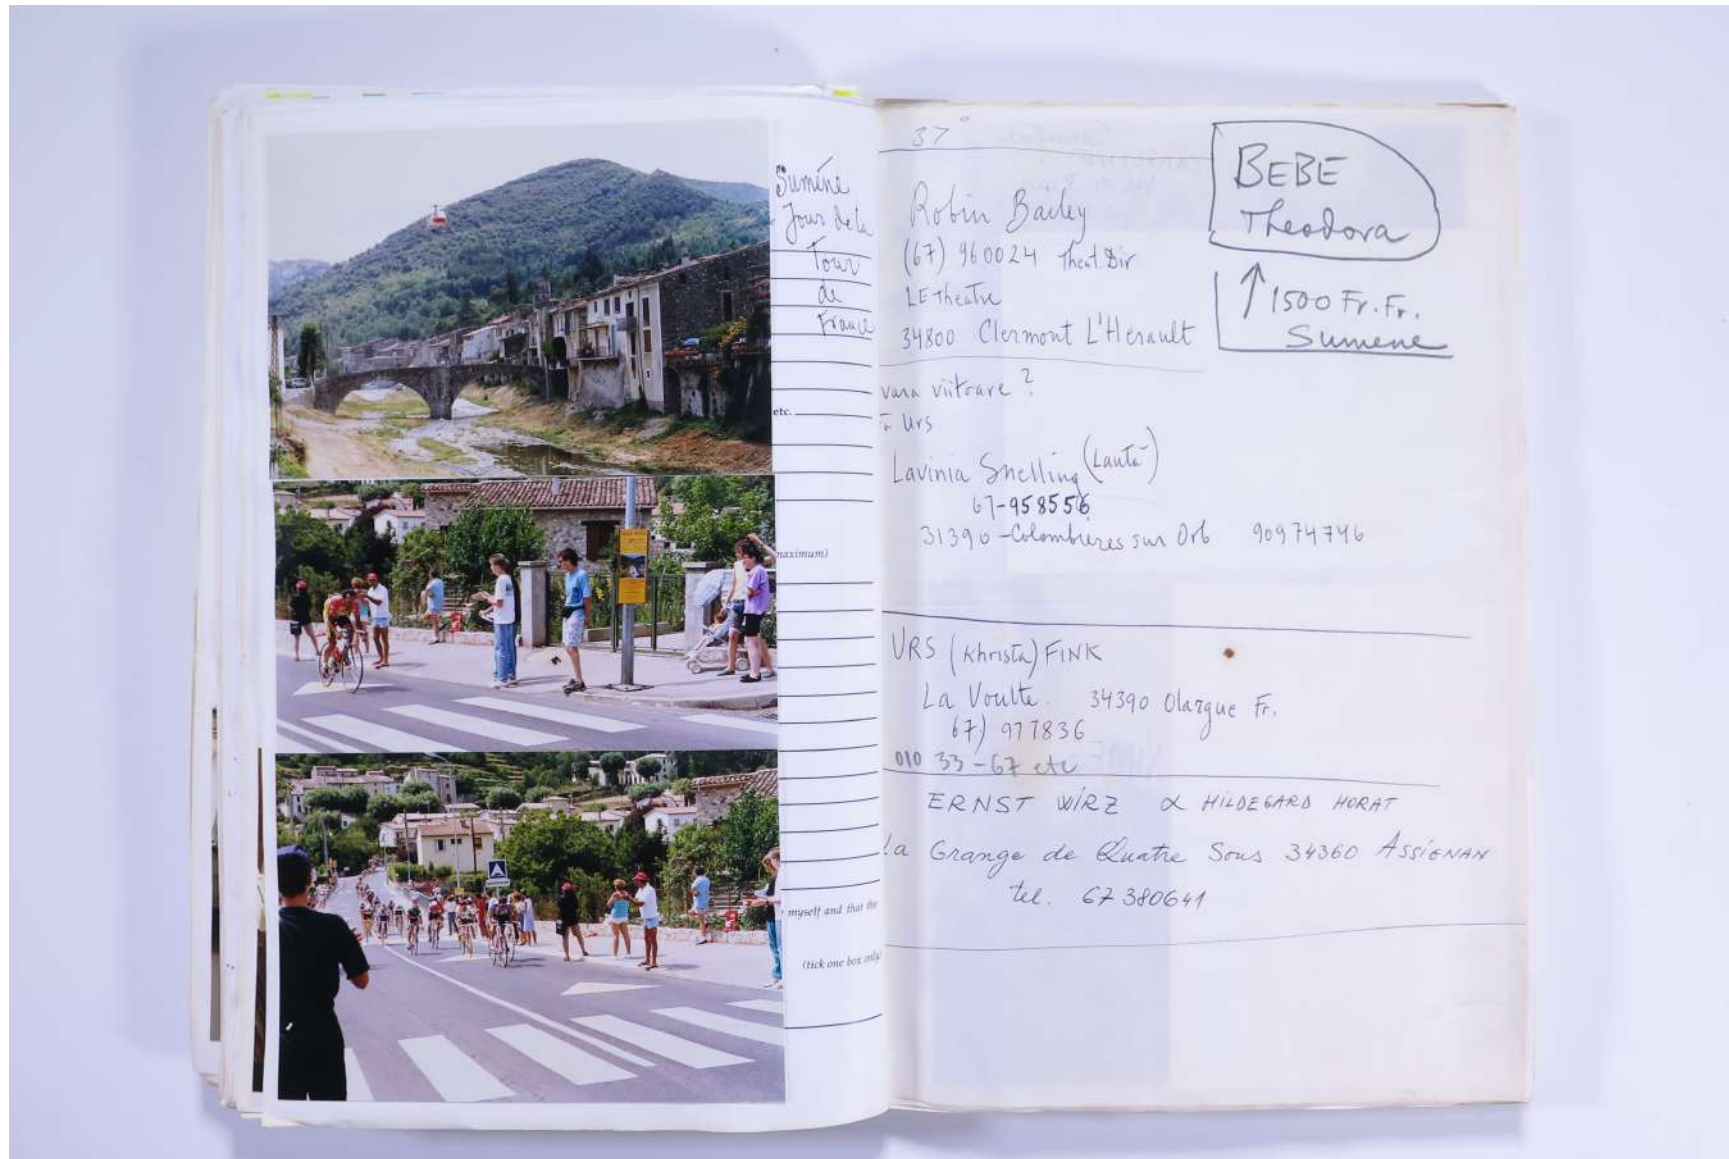 Sumène
Jour de la
Tour
de
France
etc.
maximum)
myself and that the
(tick one box only)
37°
BEBE
Theodora
↑ 1500 Fr. Fr.
Sumene
Robin Bailey
(67) 960024 Theat. Dir
LE Theatre
34800 Clermont L'Herault
vara viitoare ?
Urs
Lavinia Snelling
67-958556
31390 - Colombières sur Orb 90974746
URS (Khrista) FINK
La Voulte. 34390 Olargue Fr.
67) 977836
010 33 - 67 etc
ERNST WIRZ & HILDEGARD HORAT
La Grange de Quatre Sous 34360 ASSIGNAN
tel. 67 380641